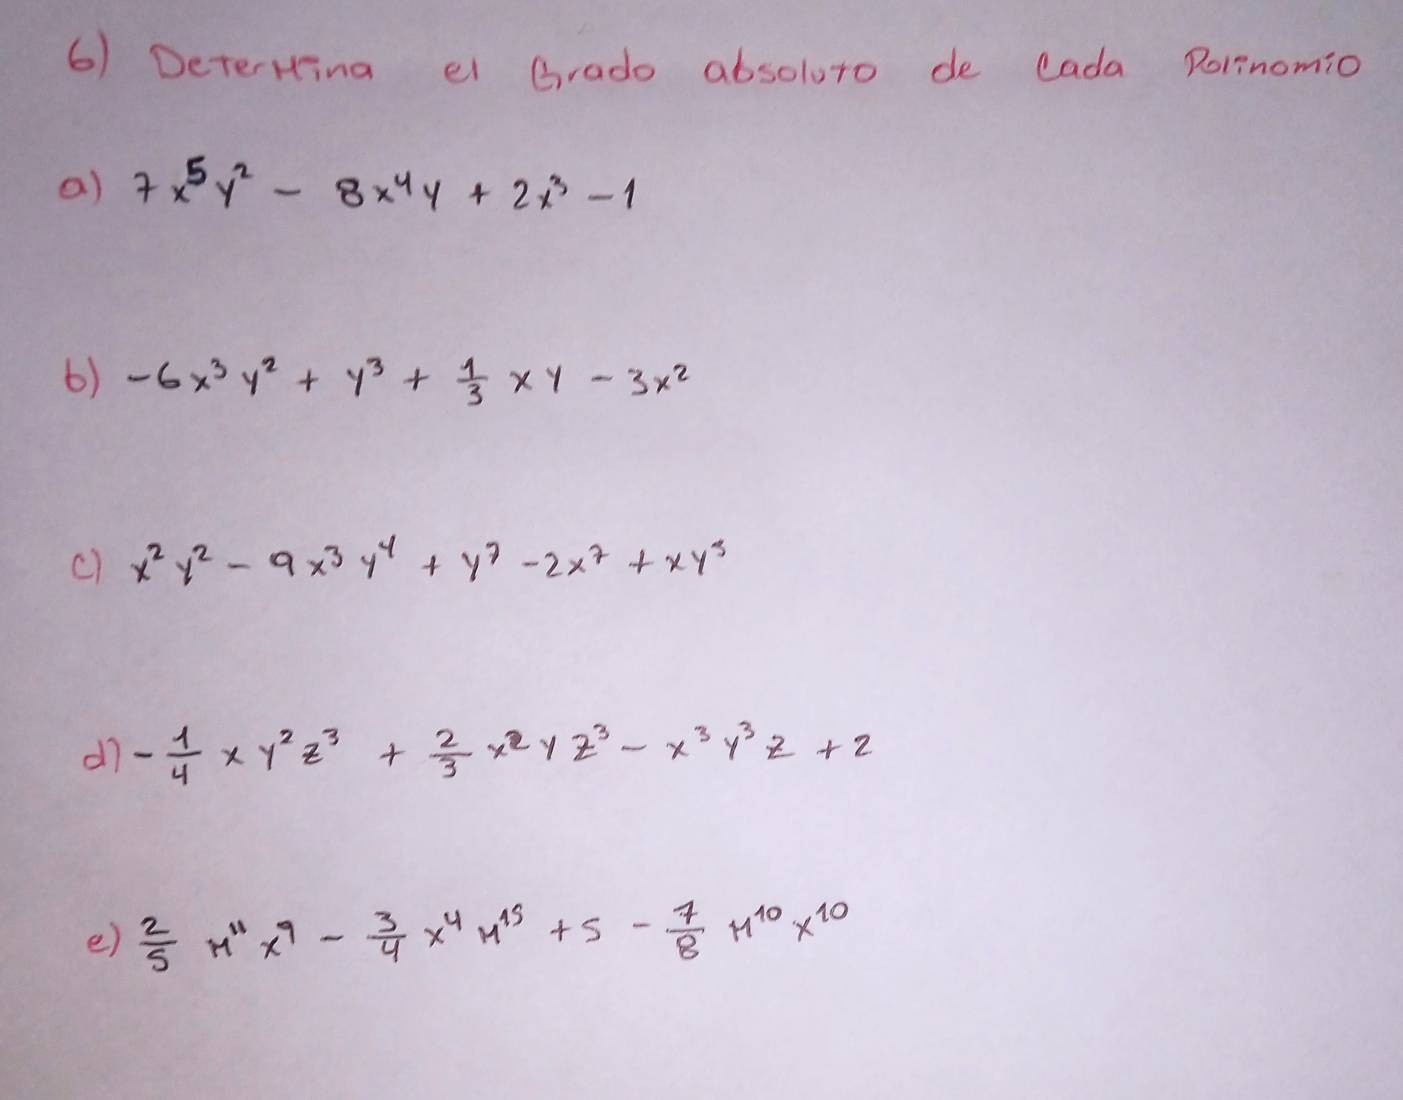 6) Determina el Grado absoluto de Cada Polinomio
a) 7x⁵y² - 8x⁴y + 2x³ - 1
b) -6x³y² + y³ + 1/3 xy - 3x²
c) x²y² - 9x³y⁴ + y⁷ - 2x⁷ + xy⁵
d) -1/4 xy²z³ + 2/3 x²yz³ - x³y³z + 2
e) 2/5 m¹¹x⁹ - 3/4 x⁴m¹⁵ + 5 - 7/8 m¹⁰x¹⁰